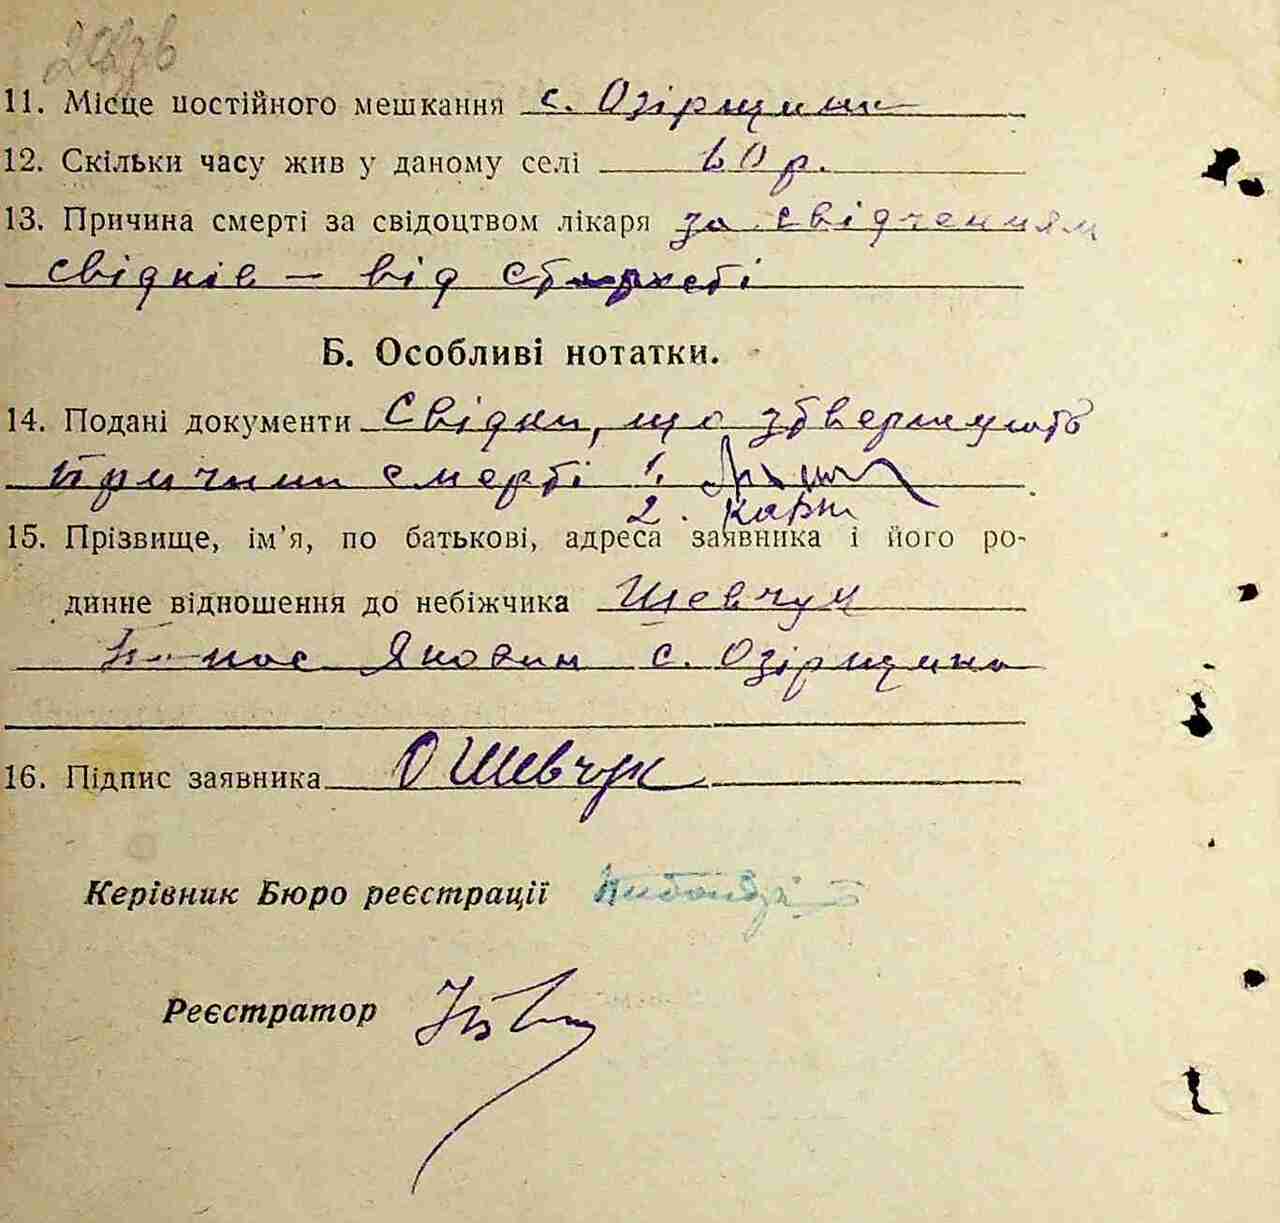 11. Місце постійного мешкання с. Озірщина
12. Скільки часу жив у даному селі 60 р.
13. Причина смерті за свідоцтвом лікаря за свідченням
свідків – від старості
Б. Особливі нотатки.
14. Подані документи Свідки, що зтвержують
причини смерті 1.
2.
15. Прізвище, ім'я, по батькові, адреса заявника і його ро-
динне відношення до небіжчика Шевчук
с. Озірщина
16. Підпис заявника О Шевчук
Керівник Бюро реєстрації
Реєстратор